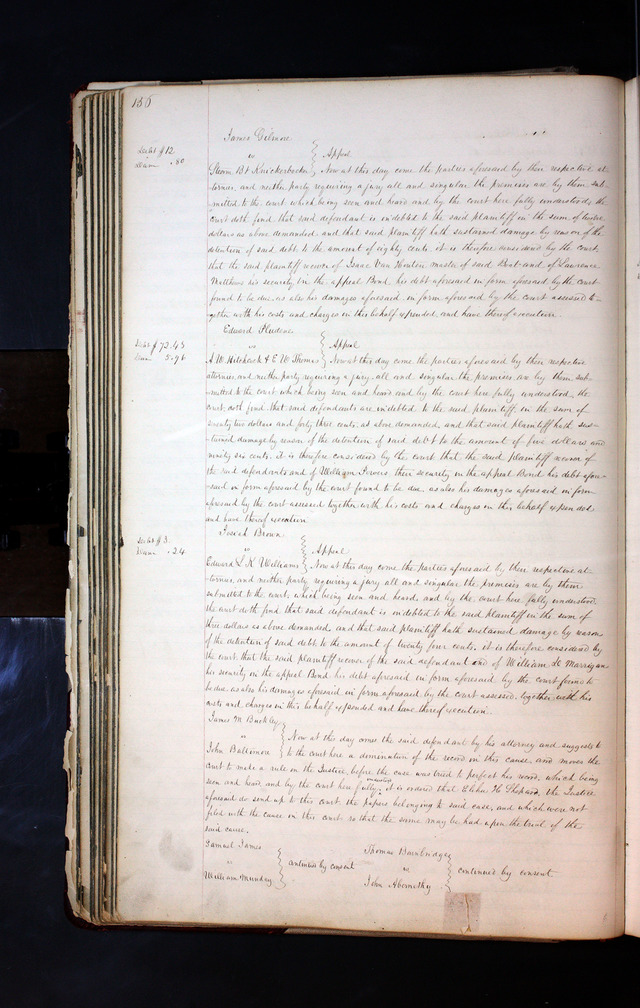 156
James Gilmore
Debt $12
Dam .80
vs } Appeal
Steam Bt Knickerbocker } Now at this day come the parties aforesaid by their respective at-
tornies, and neither party requiring a jury all and singular the premises are by them sub-
mitted to the court which being seen and heard and by the court here fully understood, the
court doth find that said defendant is indebted to the said plaintiff in the sum of twelve
dollars as above demanded and that said plaintiff hath sustained damage by reason of the
detention of said debt to the amount of eighty cents. it is therefore considered by the court
that the said plaintiff recover of Isaac Van Houten master of said Boat and of Lawrence
Matthews his security in the appeal Bond, his debt aforesaid in form aforesaid by the court
found to be due, as also his damages aforesaid in form aforesaid by the court assessed to-
gether with his costs and charges in this behalf expended, and have thereof execution.
Edward
Debt $72.43
Dam 5.96
vs } Appeal
A W Hitchcock & E W Thomas } Now at this day come the parties aforesaid by their respective
attornies and neither party requiring a jury all and singular the premises are by them sub-
mitted to the court which being seen and heard and by the court here fully understood, the
court doth find that said defendants are indebted to the said plaintiff in the sum of
seventy two dollars and forty three cents, as above demanded, and that said plaintiff hath sus-
tained damage by reason of the detention of said debt to the amount of five dollars and
ninety six cents. it is therefore considered by the court that the said plaintiff recover of
the said defendants and of William their security in the appeal Bond his debt afore-
said in form aforesaid by the court found to be due, as also his damages aforesaid in form
aforesaid by the court assessed together with his costs and charges in this behalf expended
and have thereof execution
Josiah Brown
Debt $3.
Dam .24
vs } Appeal
Edward L. K. Williams } Now at this day come the parties aforesaid by their respective at-
tornies, and neither party requiring a jury all and singular the premises are by them
submitted to the court, which being seen and heard, and by the court here fully understood
the court doth find that said defendant is indebted to the said plaintiff in the sum of
three dollars as above demanded and that said plaintiff hath sustained damage by reason
of the detention of said debt to the amount of twenty four cents. it is therefore considered by
the court that the said plaintiff recover of the said defendant and of William
his security in the appeal Bond his debt aforesaid in form aforesaid by the court found to
be due, as also his damages aforesaid in form aforesaid by the court assessed, together with his
costs and charges in this behalf expended and have thereof execution.
James M Buckley
vs } Now at this day comes the said defendant by his attorney and suggests to
John Baltimore } to the court here a diminution of the record in this cause, and moves the
court to make a rule on the Justice, before the case was tried to perfect his record, which being
seen and heard, and by the court here fully understood, it is ordered that Elihu H Shepard, the Justice
aforesaid do send up to this court the papers belonging to said case, and which were not
filed with the cause in this court so that the same may be had upon the trial of the
said cause.
Samuel James
vs } continued by consent
William Mundey
Thomas Bainbridge
vs } continued by consent
John Abernathy